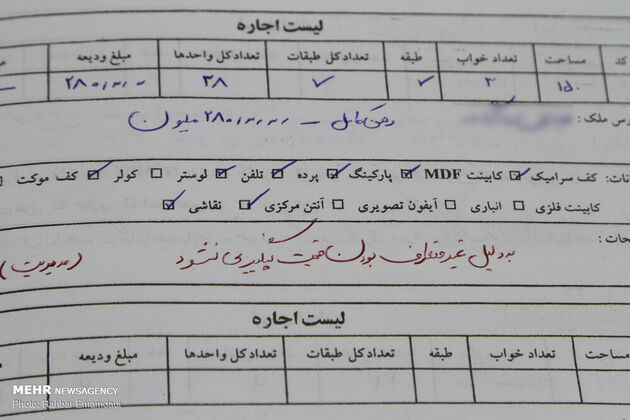 لیست اجاره
کد مساحت تعداد خواب طبقه تعداد کل طبقات تعداد کل واحدها مبلغ ودیعه
۱۵۰ ۳ ۷ ۷ ۲۸ ۲۸۰/۰۰۰/۰۰۰
رس ملک : رهن کامل ــ ۲۸۰/۰۰۰/۰۰۰ میلیون
نات: کف سرامیک کابینت MDF پارکینگ پرده تلفن لوستر کولر کف موکت
کابینت فلزی انباری آیفون تصویری آنتن مرکزی نقاشی
حات : به دلیل غیر متعارف بودن قیمت پیگیری نشود (مدیریت)
لیست اجاره
مساحت تعداد خواب طبقه تعداد کل طبقات تعداد کل واحدها مبلغ ودیعه
MEHR NEWSAGENCY
Photo: Rahbar Emamdadi